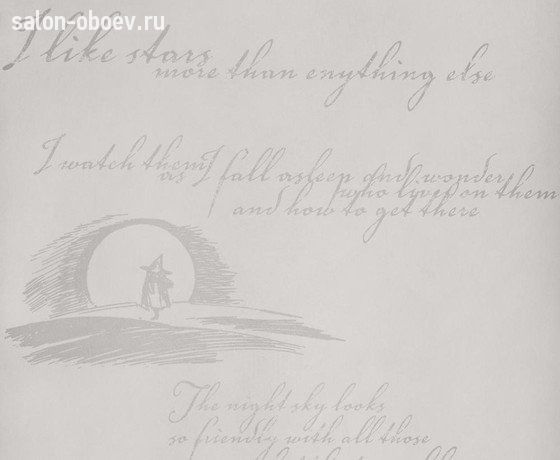 salon-oboev.ru
I like stars
more than enything else
I watch them
as I fall asleep and wonder
who lives on them
and how to get there
The night sky looks
so friendly with all those